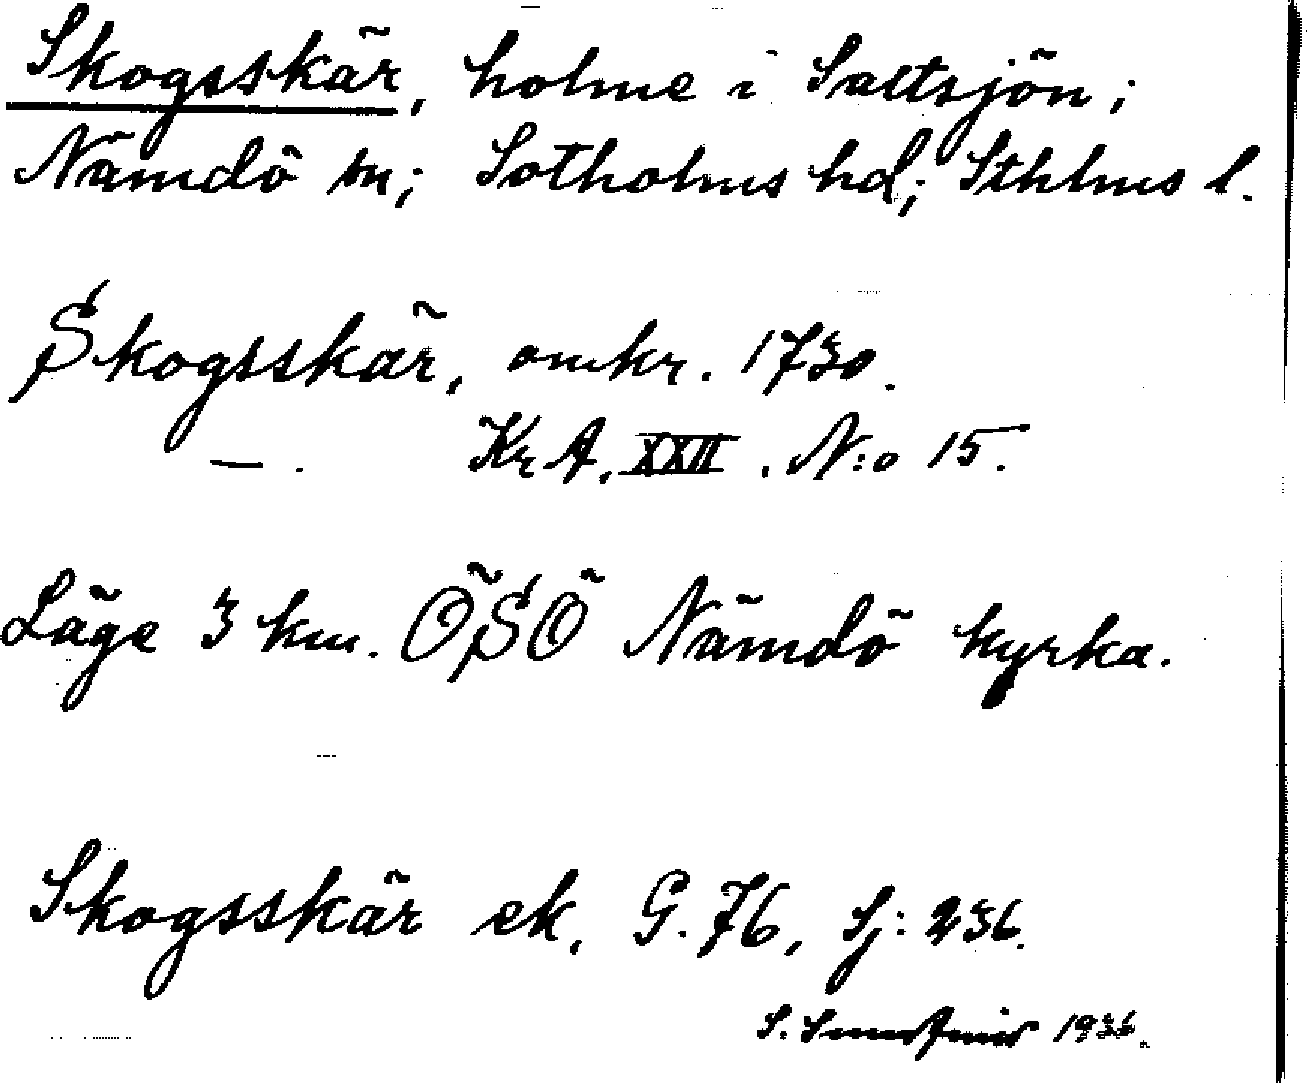 Skogsskär, holme i Saltsjön;
Nämdö sn; Sotholms hd; Sthlms l.
Skogsskär, omkr. 1730.
— . Kr A. XXII. N:o 15.
Läge 3 km. ÖSÖ Nämdö kyrka.
Skogsskär ek, G. 76, Sj: 236.
S. 1936.